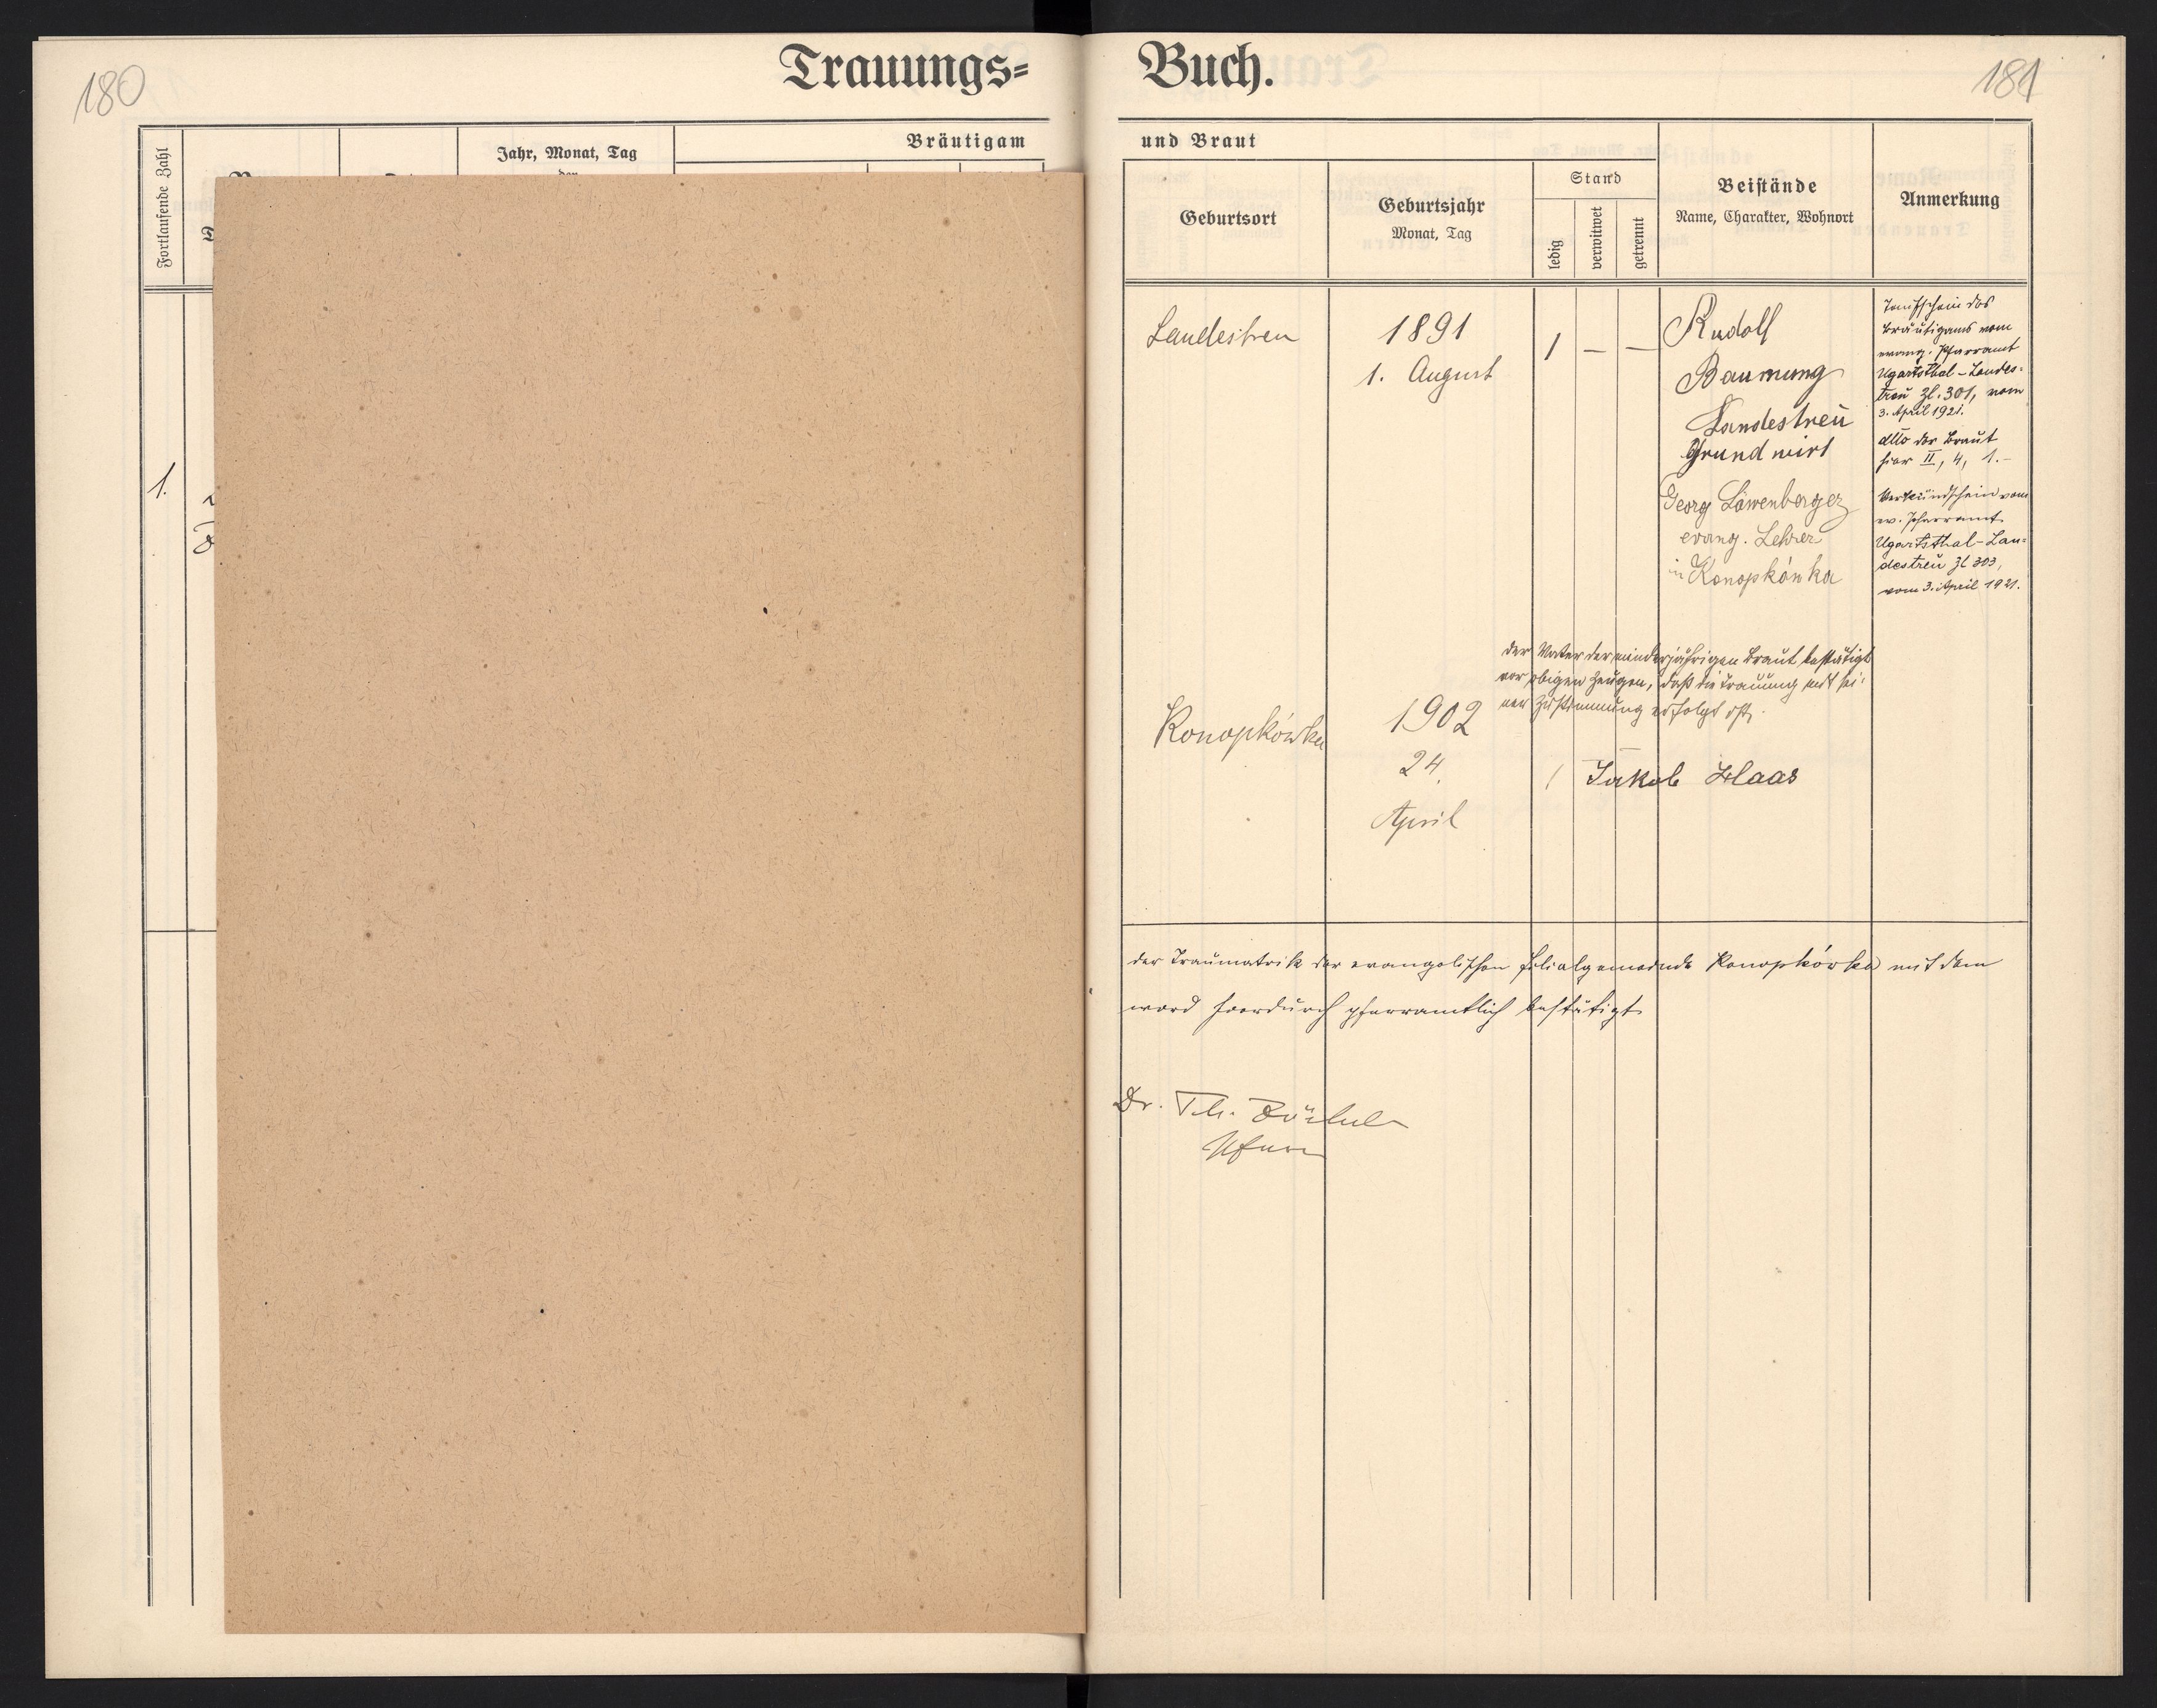 180
Trauungs=
Buch.
181
Fortlaufende Zahl
Jahr, Monat, Tag
der
Bräutigam
und Braut
Geburtsort
Geburtsjahr
Monat, Tag
Stand
ledig
verwitwet
getrennt
Beistände
Name, Charakter, Wohnort
Anmerkung
1.
Landestreu
1891
1. August
1 — —
Rudolf
Baumung
Landestreü
Grundwirt
Georg Löwenberger
evang. Lehrer
in Konopkówka
Taufschein des
Bräutigams vom
evang. Pfarramt
Ugartsthal-Landes=
treü Zl. 301, vom
3. April 1921.
dtto der Braut
hier II, 4, 1.-
Verkündschein vom
ev. Pfarramt
Ugartsthal-Lan=
destreü Zl 303,
vom 3. April 1921.
der Vater der minderjährigen Braut bestätigt
vor obigen Zeugen, daß die Trauung mit sei=
ner Zustimmung erfolgt ist.
Konopkówka
1902
24.
April
1
Jakob Haas
der Traumatrik der evangelischen Filialgemeinde Konopkówka mit dem
wird hierdurch pfarramtlich bestätigt
Dr. Th. Zöckler
Pfarrer